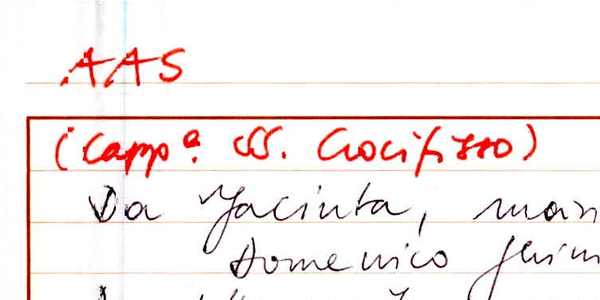 AAS
(Capp.ª SS. Crocifisso)
Da Jacinta,
Domenico